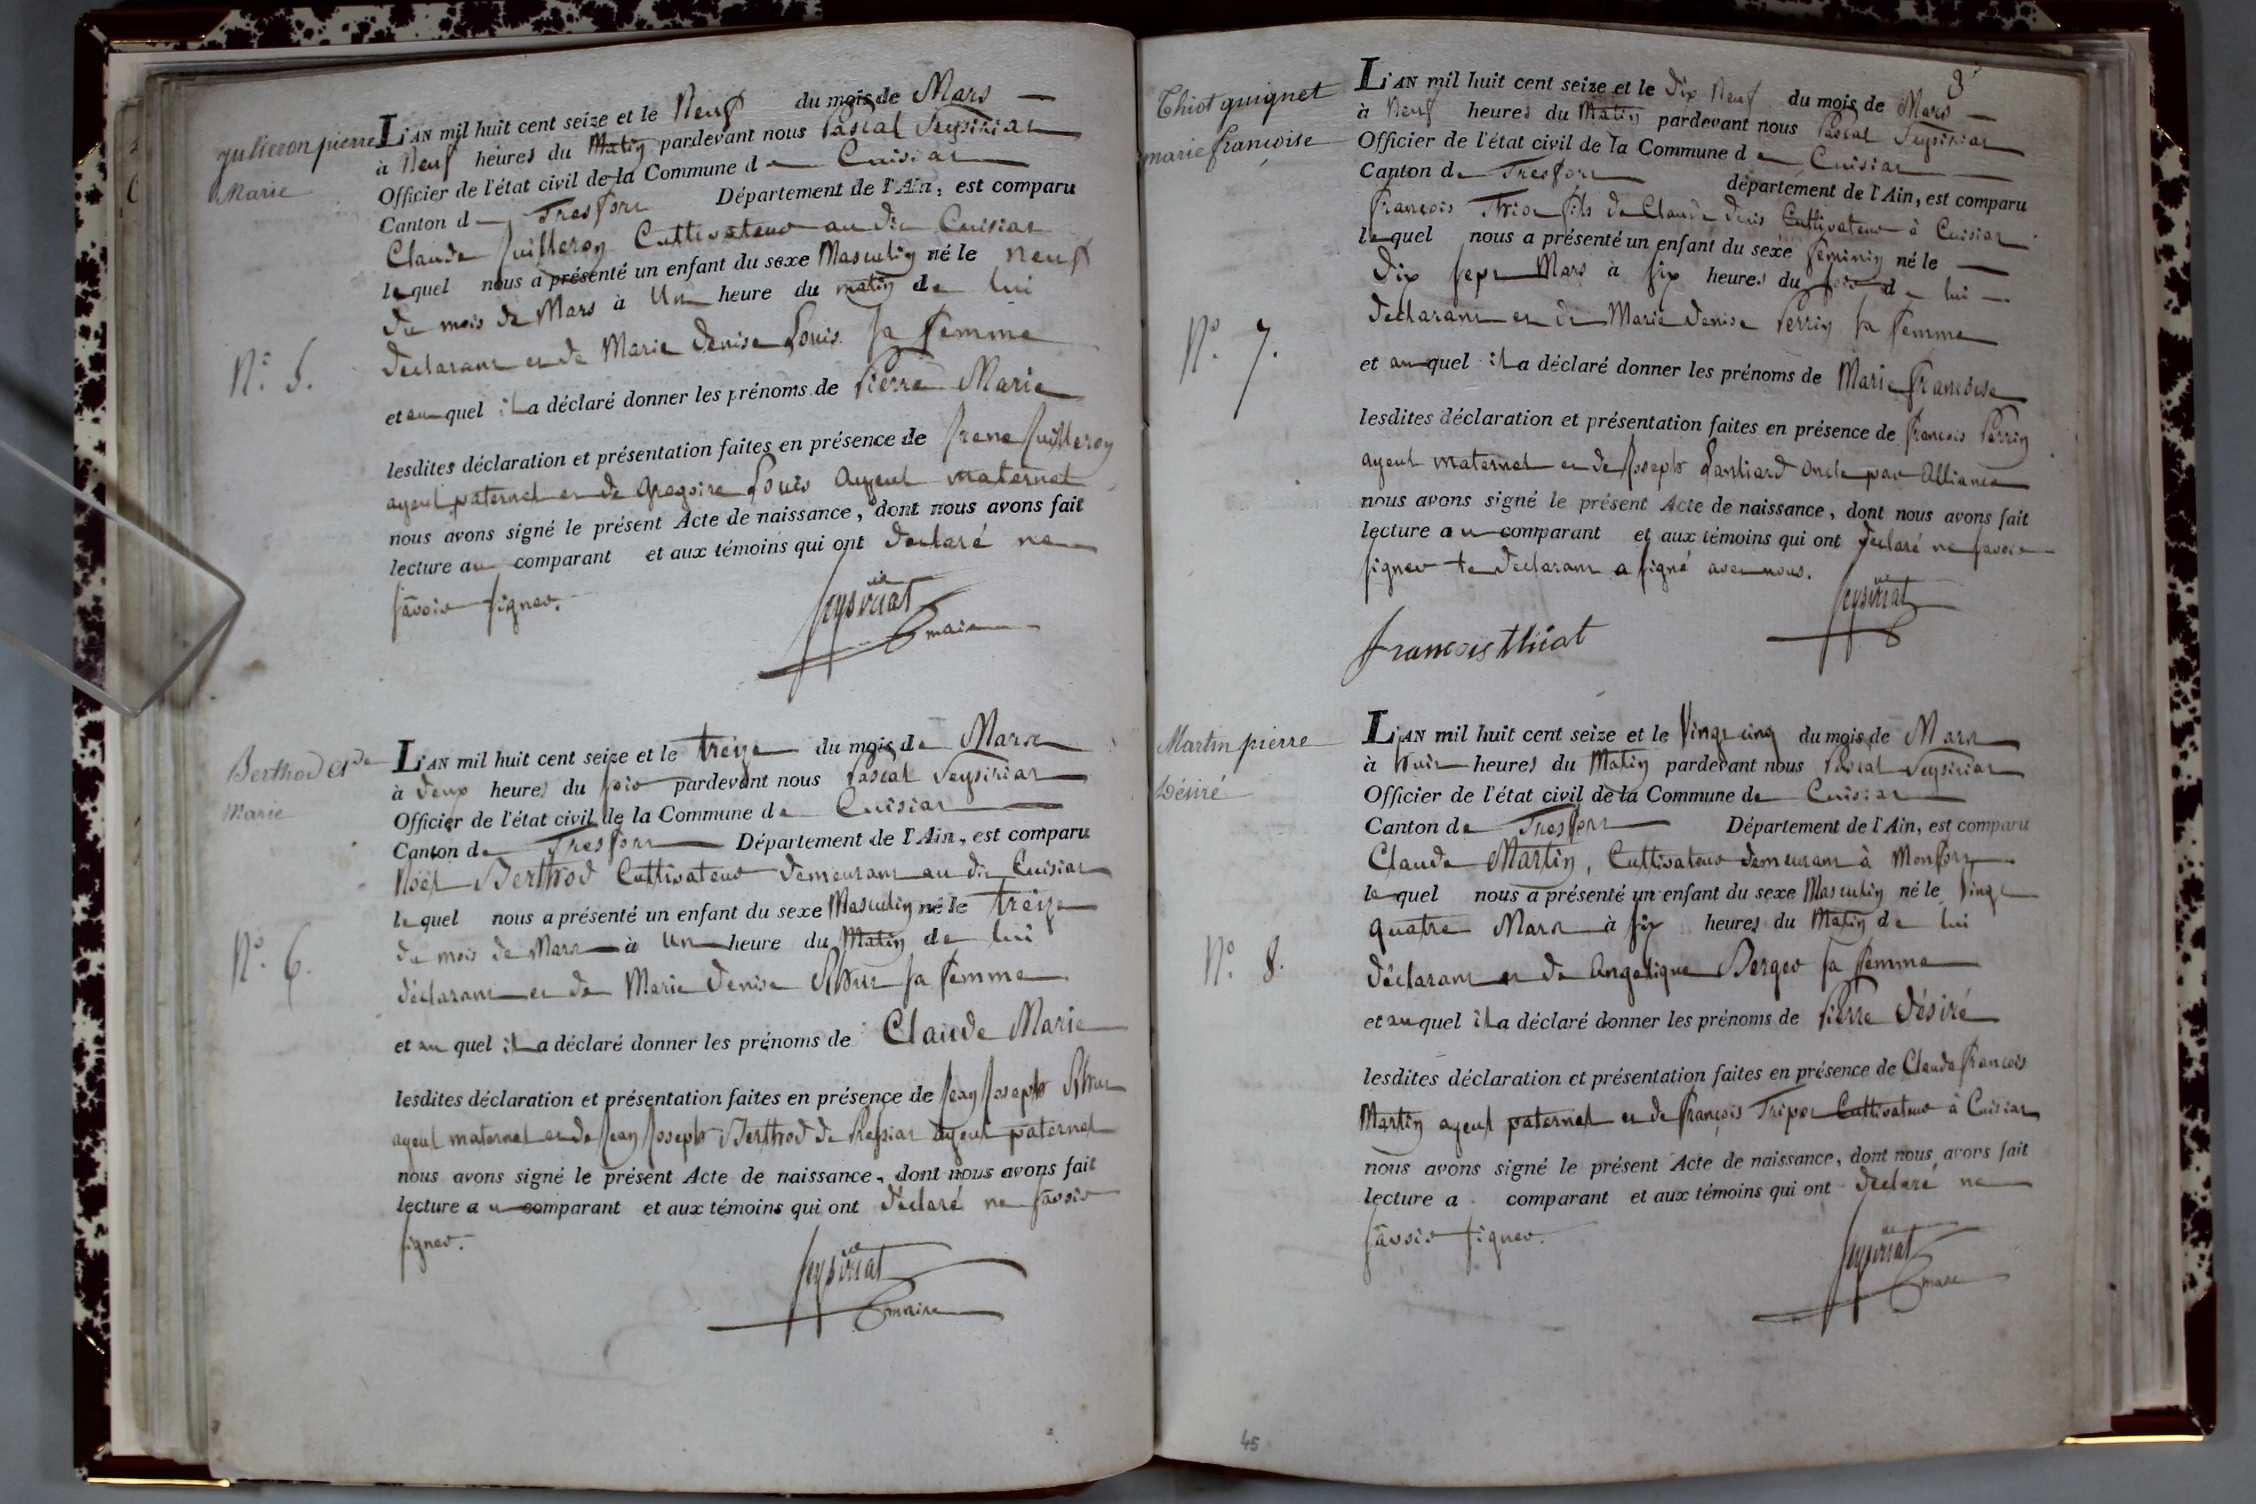 gulieron pierre
Marie
N.° 5.
L'AN mil huit cent seize et le Neuf du mois de Mars
à Neuf heures du Matin pardevant nous Pascal Seysiriat
Officier de l'état civil de la Commune de Cuisiat
Canton de Tresfort Département de l'Ain, est comparu
Claude Guilleron Cultivateur au dit Cuisiat
lequel nous a présenté un enfant du sexe Masculin né le neuf
du mois de Mars à Un heure du matin de lui
declarant et de Marie denise Louis sa femme
et auquel il a déclaré donner les prénoms de Pierre Marie
lesdites déclaration et présentation faites en présence de Guilleron
ayeul paternel et de Gregoire Louis ayeul maternel
nous avons signé le présent Acte de naissance, dont nous avons fait
lecture au comparant et aux témoins qui ont declaré ne
savoir signer.
Seysiriat
maire
Berthod Cl.de
Marie
N.° 6.
L'AN mil huit cent seize et le treize du mois de Mars
à deux heures du soir pardevant nous Pascal Seysiriat
Officier de l'état civil de la Commune de Cuisiat
Canton de Tresfort Département de l'Ain, est comparu
Noël Berthod Cultivateur demeurant au dit Cuisiat
lequel nous a présenté un enfant du sexe Masculin né le treize
du mois de Mars à Un heure du Matin de lui
déclarant et de Marie denise sa femme
et au quel il a déclaré donner les prénoms de Claude Marie
lesdites déclaration et présentation faites en présence de Jean Joseph
ayeul maternel et de Jean Joseph Berthod de Pressiat ayeul paternel
nous avons signé le présent Acte de naissance, dont nous avons fait
lecture au comparant et aux témoins qui ont déclaré ne savoir
signer.
Seysiriat
maire
3
Thiot guignet
marie francoise
N.° 7.
L'AN mil huit cent seize et le dix Neuf du mois de Mars
à Neuf heures du Matin pardevant nous Pascal Seysiriat
Officier de l'état civil de la Commune de Cuisiat
Canton de Tresfort département de l'Ain, est comparu
françois Thiot fils de Claude denis Cultivateur à Cuisiat
lequel nous a présenté un enfant du sexe féminin né le
dix sept Mars à six heures du soir de lui
declarant et de Marie denise Perrin sa femme
et auquel il a déclaré donner les prénoms de Marie francoise
lesdites déclaration et présentation faites en présence de françois Perrin
ayeul maternel et de Joseph oncle par alliance
nous avons signé le présent Acte de naissance, dont nous avons fait
lecture au comparant et aux témoins qui ont declaré ne savoir
signer le declarant a signé avec nous.
Seysiriat
francois thiot
Martin pierre
Désiré
N.° 8.
L'AN mil huit cent seize et le Vingt cinq du mois de Mars
à huit heures du Matin pardevant nous Pascal Seysiriat
Officier de l'état civil de la Commune de Cuisiat
Canton de Tresfort Département de l'Ain, est comparu
Claude Martin, Cultivateur demeurant à Monfort
lequel nous a présenté un enfant du sexe Masculin né le Vingt
quatre Mars à six heures du Matin de lui
déclarant et de Angelique Berger sa femme
et auquel il a déclaré donner les prénoms de Pierre désiré
lesdites déclaration et présentation faites en présence de Claude françois
Martin ayeul paternel et de françois Tripoz Cultivateur à Cuisiat
nous avons signé le présent Acte de naissance, dont nous avons fait
lecture a comparant et aux témoins qui ont declaré ne
savoir signer.
Seysiriat
maire
45